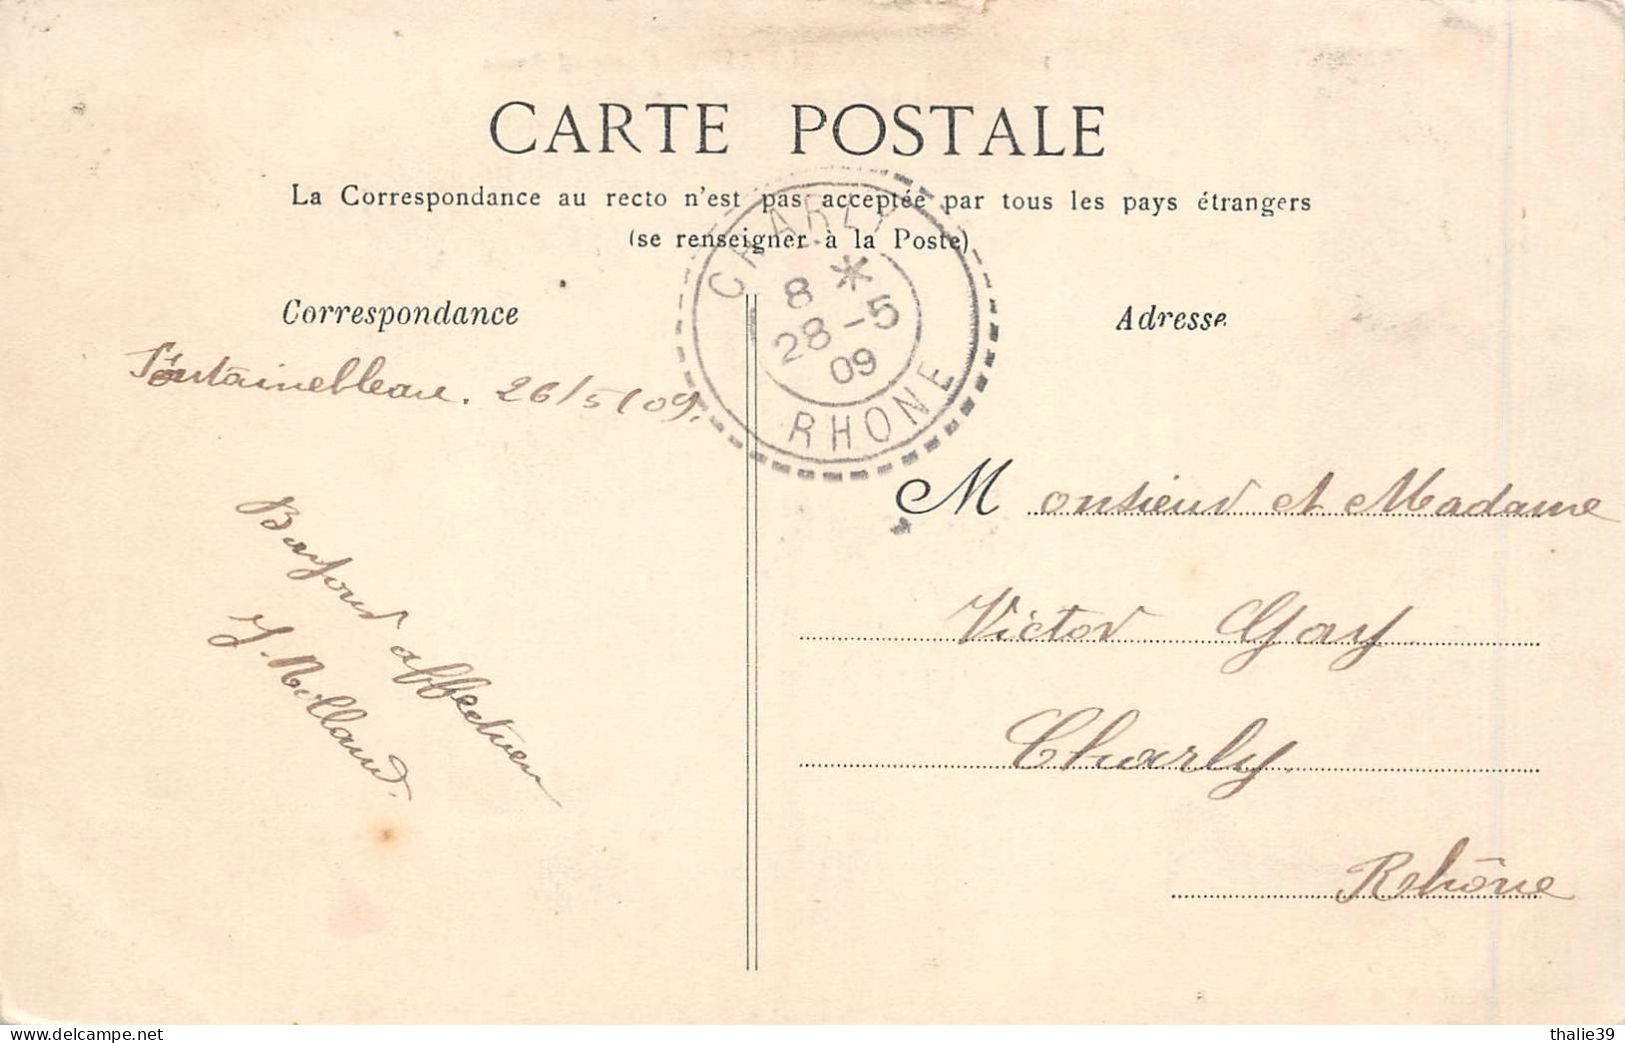 CARTE POSTALE
La Correspondance au recto n'est pas acceptée par tous les pays étrangers
(se renseigner à la Poste)
CHARLY
8 *
28 - 5
09
RHONE
Correspondance
Adresse
Fontainebleau. 26/5/09.
Bonjour affectueux
J. Rolland.
Monsieur et Madame
Victor Gay
Charly
Rhône
www.delcampe.net
thalie39